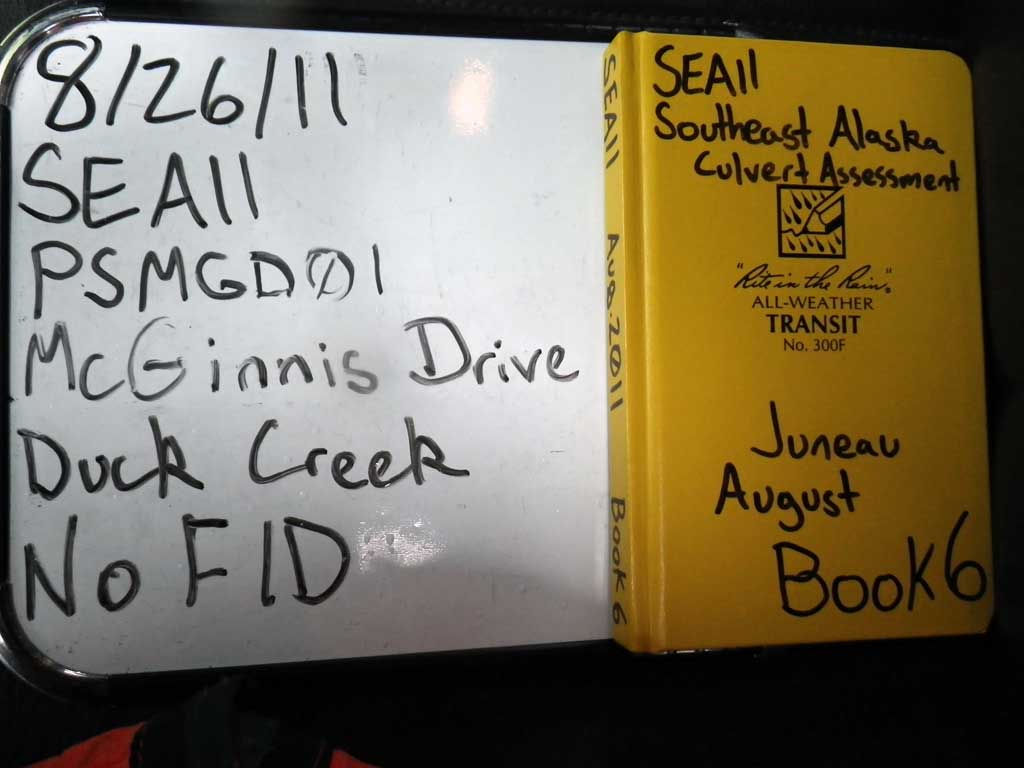 8/26/11
SEA11
PSMGDØ1
McGinnis Drive
Duck Creek
No FID
SEA11
Aug. 2011
Book 6
SEA11
Southeast Alaska
Culvert Assessment
"Rite in the Rain"
ALL-WEATHER
TRANSIT
No. 300F
Juneau
August
Book 6